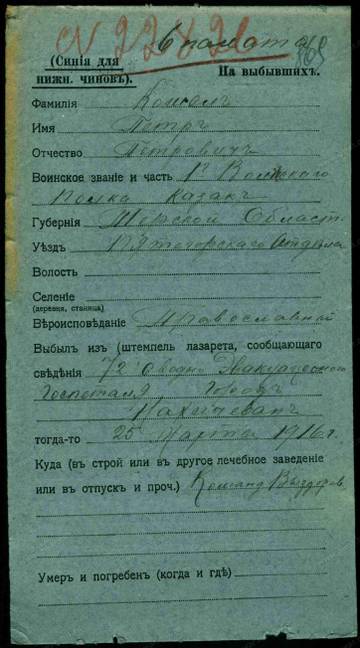 6 палата
(Синія для
нижн. чиновъ).
На выбывшихъ.
Фамилія
Имя Петръ
Отчество Петровичъ
Воинское званіе и часть 1го Волгскаго
Полка казакъ
Губернія Терской Област
Уѣздъ Пятигорскаго Отдѣла
Волость
Селеніе
(деревня, станица)
Вѣроисповѣданіе Православный
Выбылъ изъ (штемпель лазарета, сообщающаго
свѣдѣнія 72 сводно Эвакуаціоннаго
Госпиталя Город
Нахичевань
тогда-то 25 Марта 1916 г.
Куда (въ строй или въ другое лечебное заведеніе
или въ отпускъ и проч.) Команд Выздоров
Умеръ и погребенъ (когда и гдѣ)